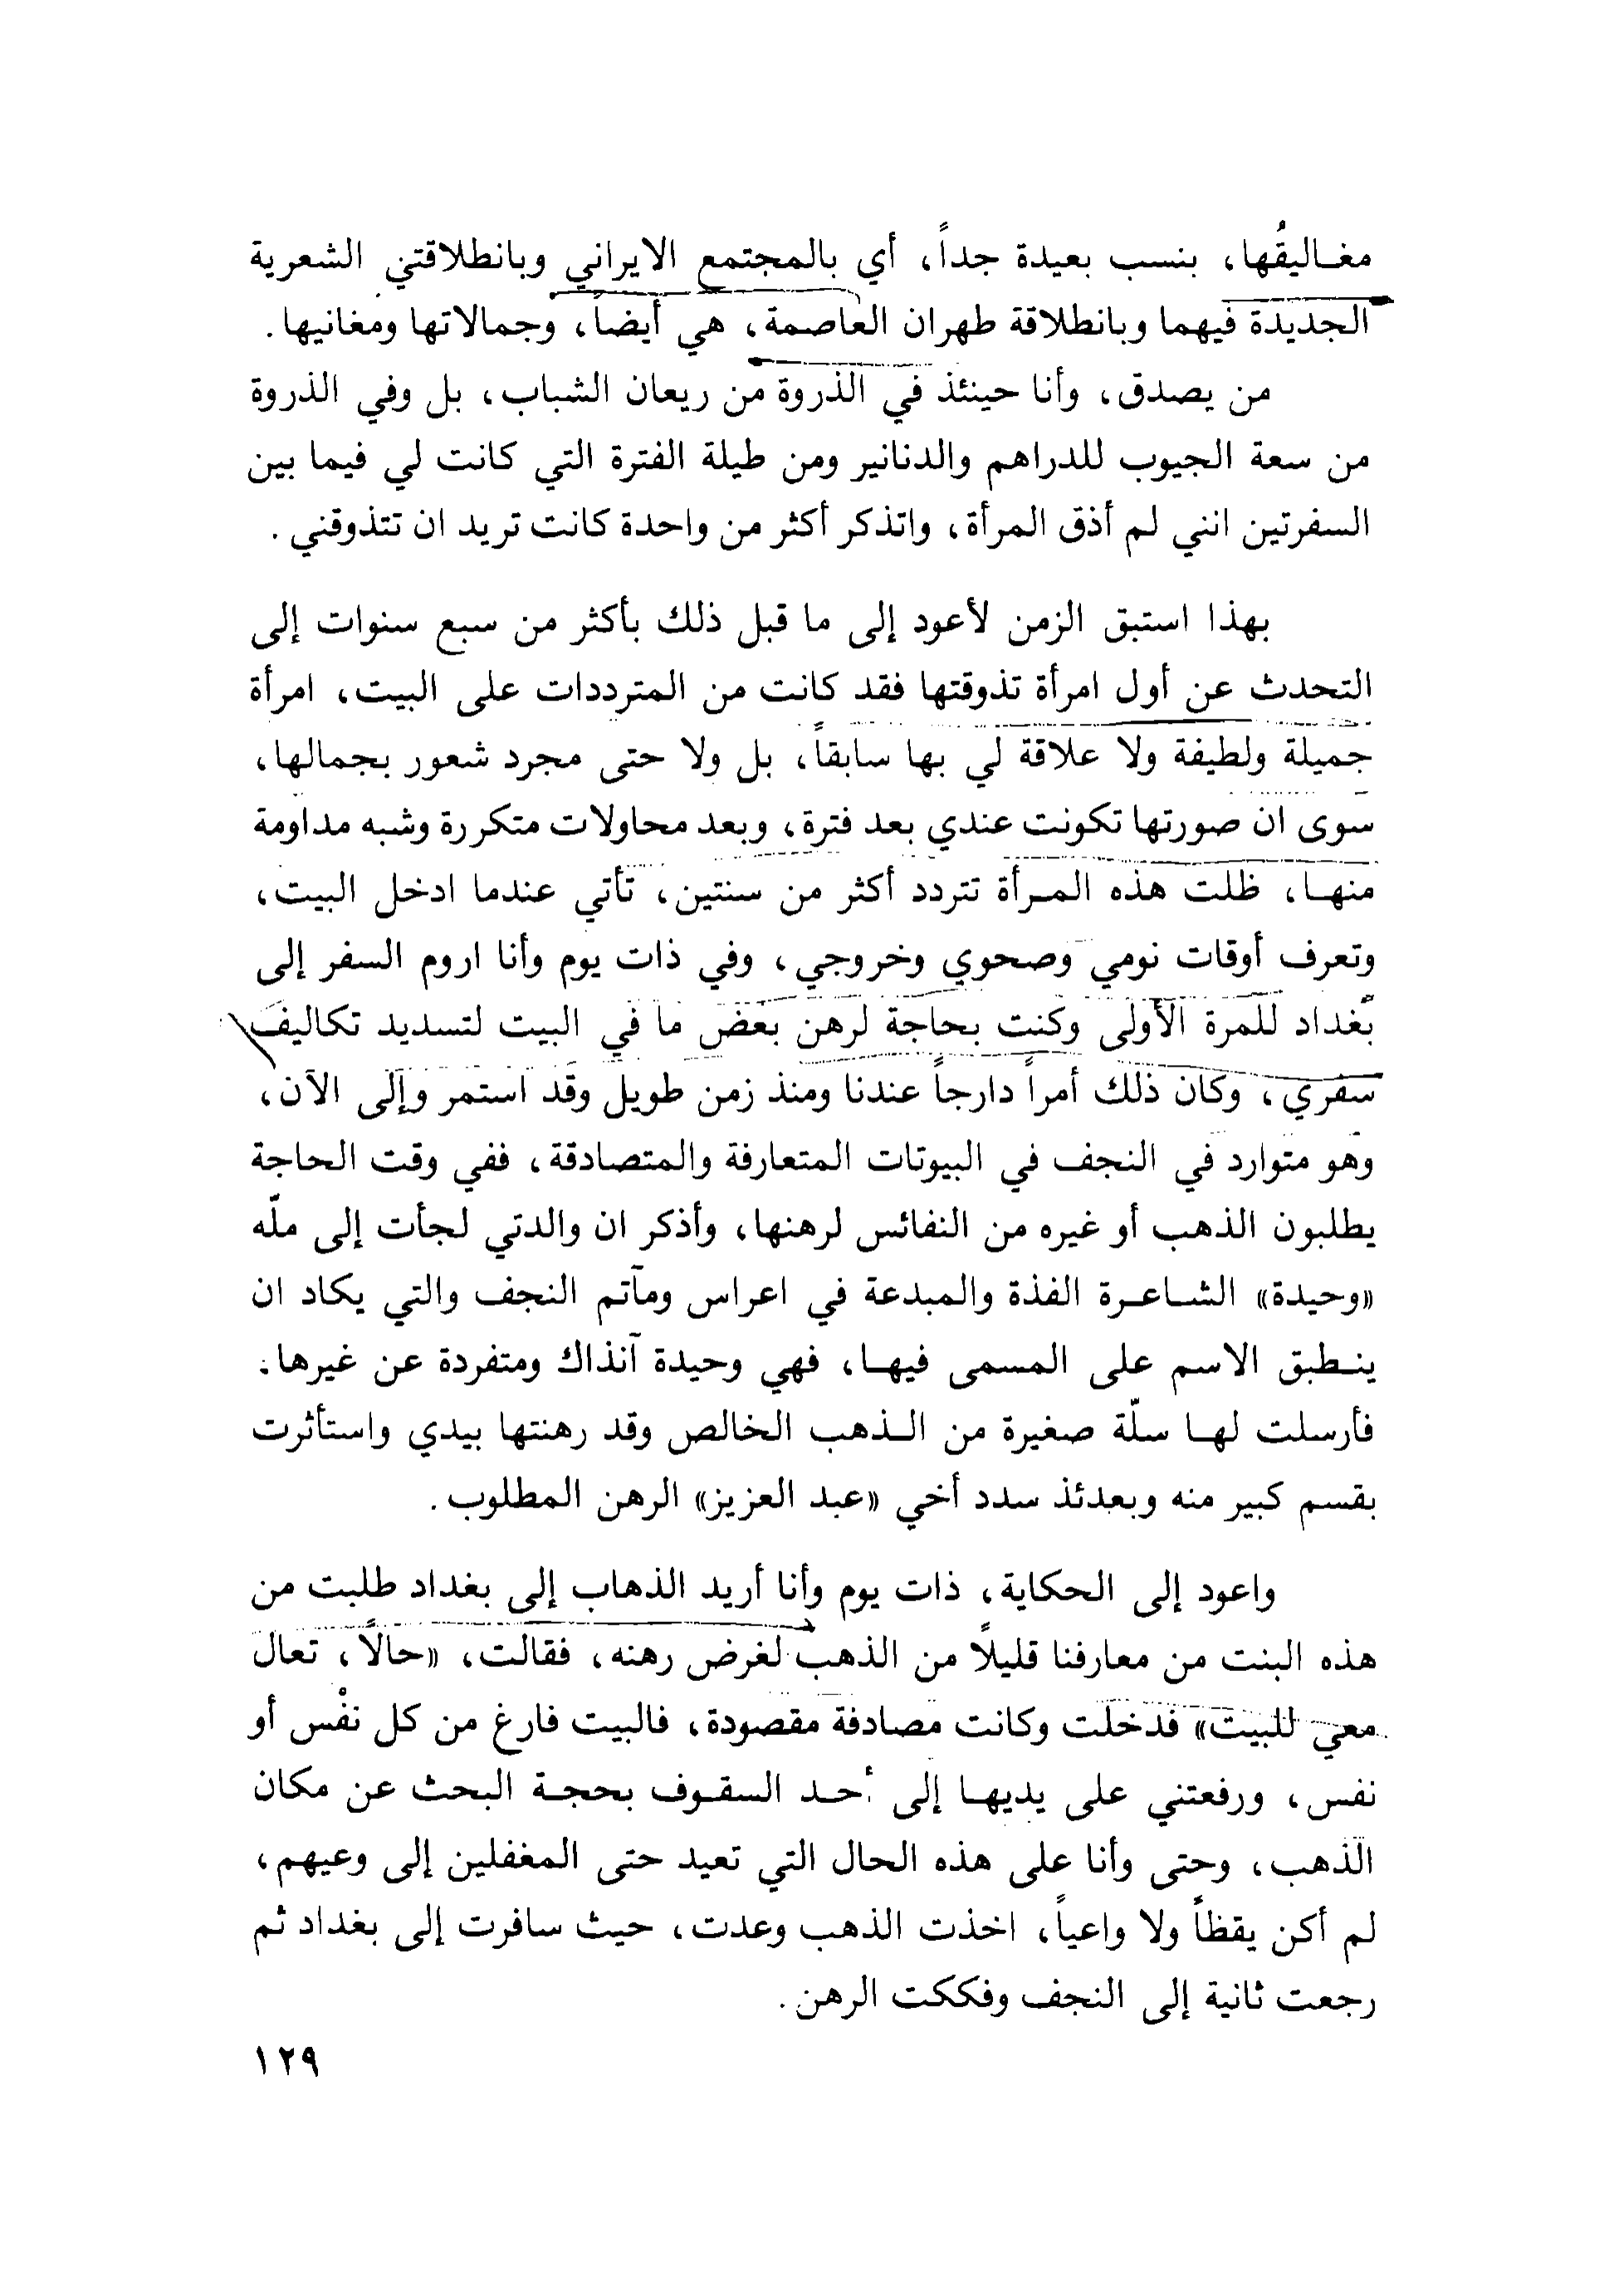 مغـاليقُها، بنسب بعيدة جداً، أي بالمجتمع الايراني وبانطلاقتي الشعرية
الجديدة فيهما وبانطلاقة طهران العاصمة، هي أيضاً، وجمالاتها ومغانيها.
من يصدق، وأنا حينئذ في الذروة من ريعان الشباب، بل وفي الذروة
من سعة الجيوب للدراهم والدنانير ومن طيلة الفترة التي كانت لي فيما بين
السفرتين انني لم أذق المرأة، واتذكر أكثر من واحدة كانت تريد ان تتذوقني.
بهذا استبق الزمن لأعود إلى ما قبل ذلك بأكثر من سبع سنوات إلى
التحدث عن أول امرأة تذوقتها فقد كانت من المترددات على البيت، امرأة
جميلة ولطيفة ولا علاقة لي بها سابقاً، بل ولا حتى مجرد شعور بجمالها،
سوى ان صورتها تكونت عندي بعد فترة، وبعد محاولات متكررة وشبه مداومة
منهـا، ظلت هذه المـرأة تتردد أكثر من سنتين، تأتي عندما ادخل البيت،
وتعرف أوقات نومي وصحوي وخروجي، وفي ذات يوم وأنا اروم السفر إلى
بغداد للمرة الأولى وكنت بحاجة لرهن بعض ما في البيت لتسديد تكاليف
سفري، وكان ذلك أمراً دارجاً عندنا ومنذ زمن طويل وقد استمر وإلى الآن،
وهو متوارد في النجف في البيوتات المتعارفة والمتصادقة، ففي وقت الحاجة
يطلبون الذهب أو غيره من النفائس لرهنها، وأذكر ان والدتي لجأت إلى ملّه
«وحيدة» الشـاعـرة الفذة والمبدعة في اعراس ومآتم النجف والتي يكاد ان
ينـطبق الاسم على المسمى فيهـا، فهي وحيدة آنذاك ومتفردة عن غيرها.
فأرسلت لهـا سلّة صغيرة من الـذهب الخالص وقد رهنتها بيدي واستأثرت
بقسم كبير منه وبعدئذ سدد أخي «عبد العزيز» الرهن المطلوب.
واعود إلى الحكاية، ذات يوم وأنا أريد الذهاب إلى بغداد طلبت من
هذه البنت من معارفنا قليلاً من الذهب لغرض رهنه، فقالت، «حالاً، تعال
معي للبيت» فدخلت وكانت مصادفة مقصودة، فالبيت فارغ من كل نفْس أو
نفس، ورفعتني على يديهـا إلى أحـد السقـوف بحجـة البحث عن مكان
الذهب، وحتى وأنا على هذه الحال التي تعيد حتى المغفلين إلى وعيهم،
لم أكن يقظاً ولا واعياً، اخذت الذهب وعدت، حيث سافرت إلى بغداد ثم
رجعت ثانية إلى النجف وفككت الرهن.
١٢٩